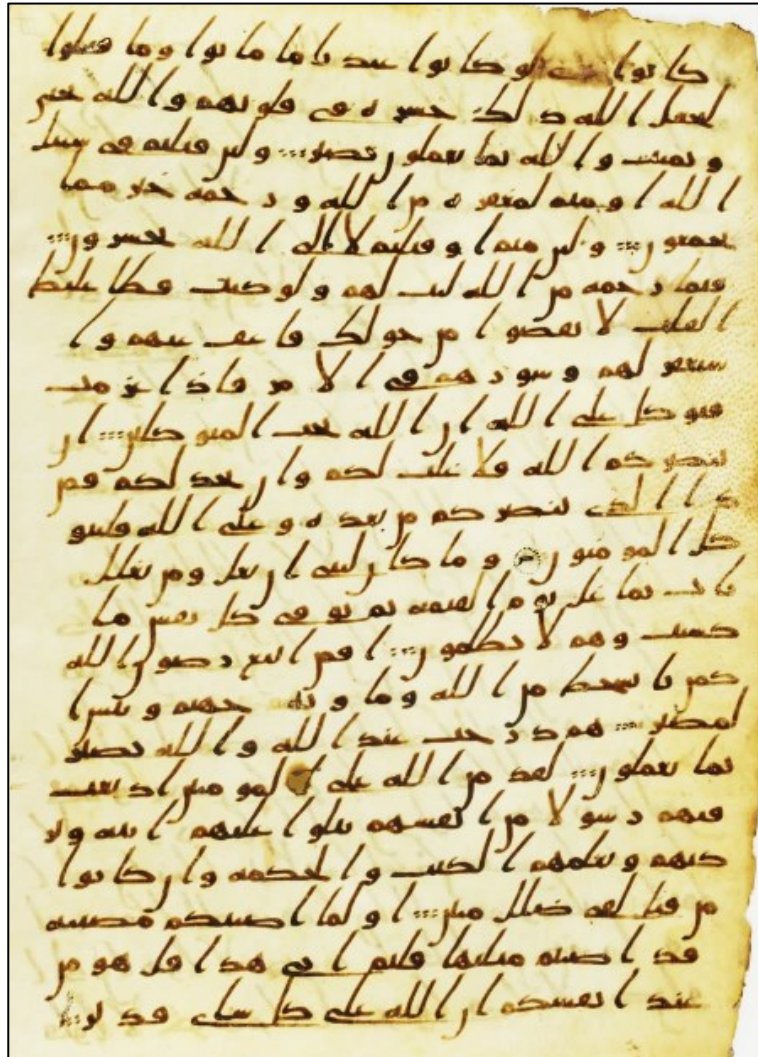 كانوا غزى لو كانوا عندنا ما ماتوا وما قتلوا
ليجعل الله ذلك حسرة في قلوبهم والله يحيى
ويميت والله بما تعملون بصير ولئن قتلتم في سبيل
الله او متم لمغفرة من الله ورحمة خير مما
يجمعون ولئن متم او قتلتم لالى الله تحشرون
فبما رحمة من الله لنت لهم ولو كنت فظا غليظ
القلب لانفضوا من حولك فاعف عنهم وا
ستغفر لهم وشورهم في الامر فاذا عزمت
فتوكل على الله ان الله يحب المتوكلين ان
ينصركم الله فلا غلب لكم وان يخذلكم فمن
ذا الذي ينصركم من بعده وعلى الله فليتو
كل المومنون وما كان لنبي ان يغل ومن يغلل
يات بما غل يوم القيمة ثم توفى كل نفس ما
كسبت وهم لا يظلمون افمن اتبع رضون الله
كمن با بسخط من الله وماويه جهنم وبئس ا
لمصير هم درجت عند الله والله بصير
بما يعملون لقد من الله على المومنين اذ بعث
فيهم رسولا من انفسهم يتلوا عليهم ايته ويز
كيهم ويعلمهم الكتب والحكمة وان كانوا
من قبل لفي ضلل مبين اولما اصبتكم مصيبة
قد اصبتم مثليها قلتم انى هذا قل هو من
عند انفسكم ان الله على كل شى قدير